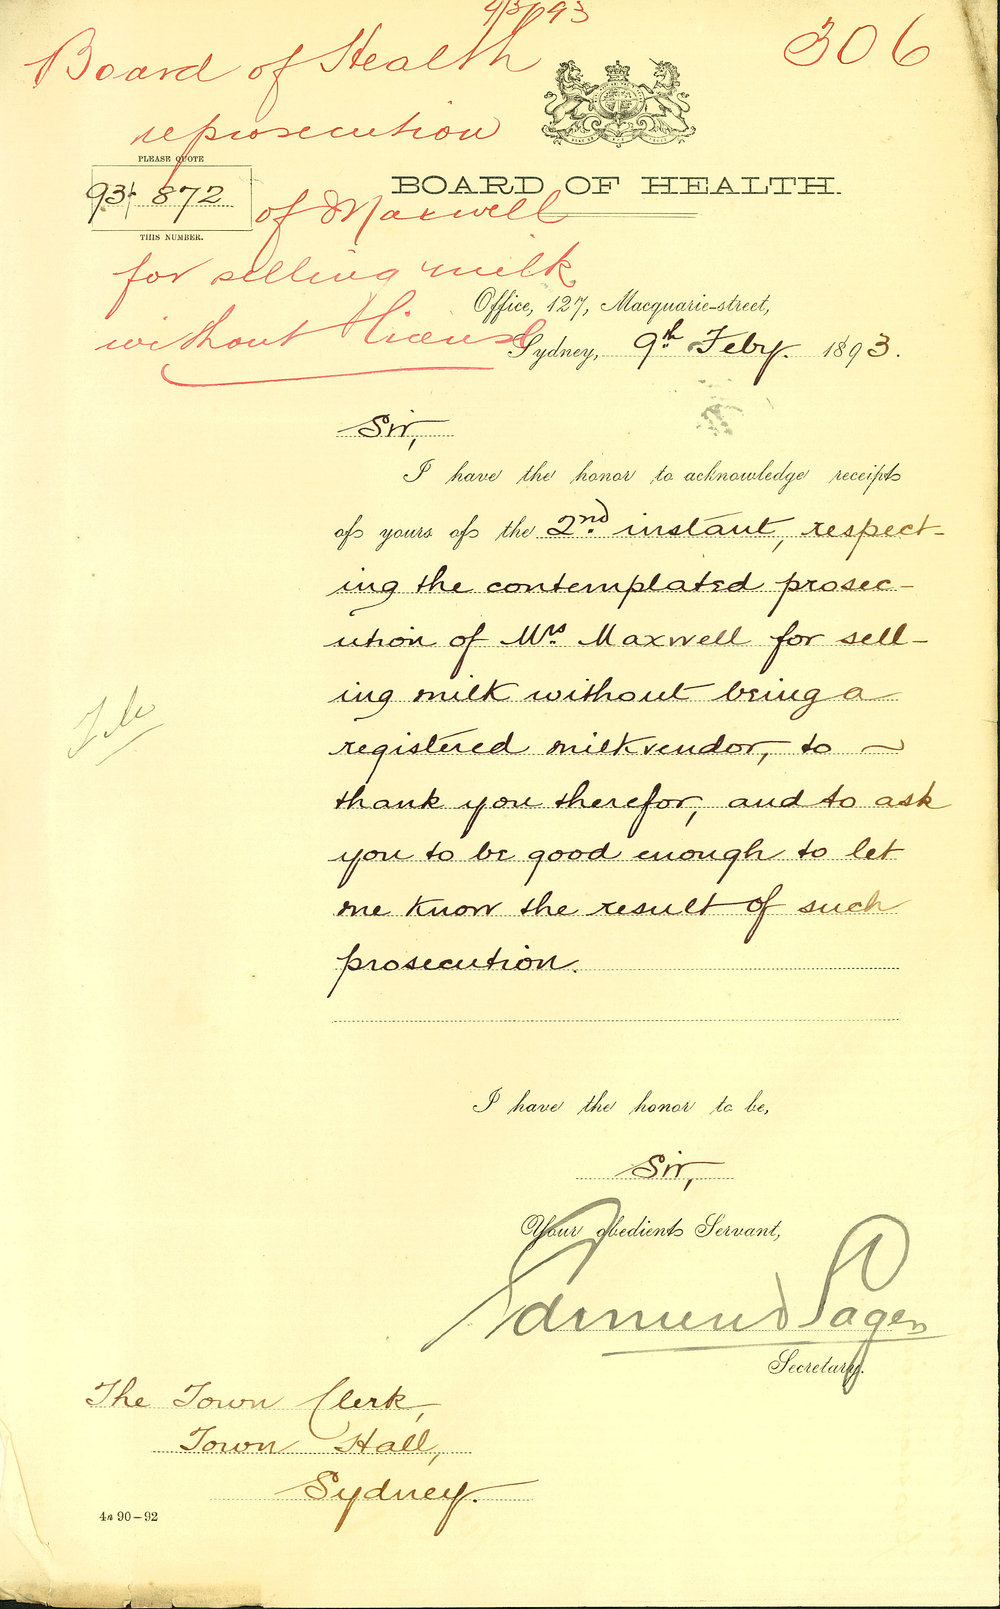 93
306
Board of Health
re prosecution
PLEASE QUOTE
93/ 872
THIS NUMBER.
BOARD OF HEALTH.
of Maxwell
for selling milk
without license
Office, 127, Macquarie-street,
Sydney, 9th Feby. 1893.
Sir,
I have the honor to acknowledge receipt
of yours of the 2nd instant, respect-
ing the contemplated prosec-
ution of Mrs Maxwell for sell-
ing milk without being a
registered milkvendor, to
thank you therefor, and to ask
you to be good enough to let
me know the result of such
prosecution.
File
I have the honor to be,
Sir,
Your obedient Servant,
Edmund Sager
Secretary.
The Town Clerk,
Town Hall,
Sydney.
4a 90–92